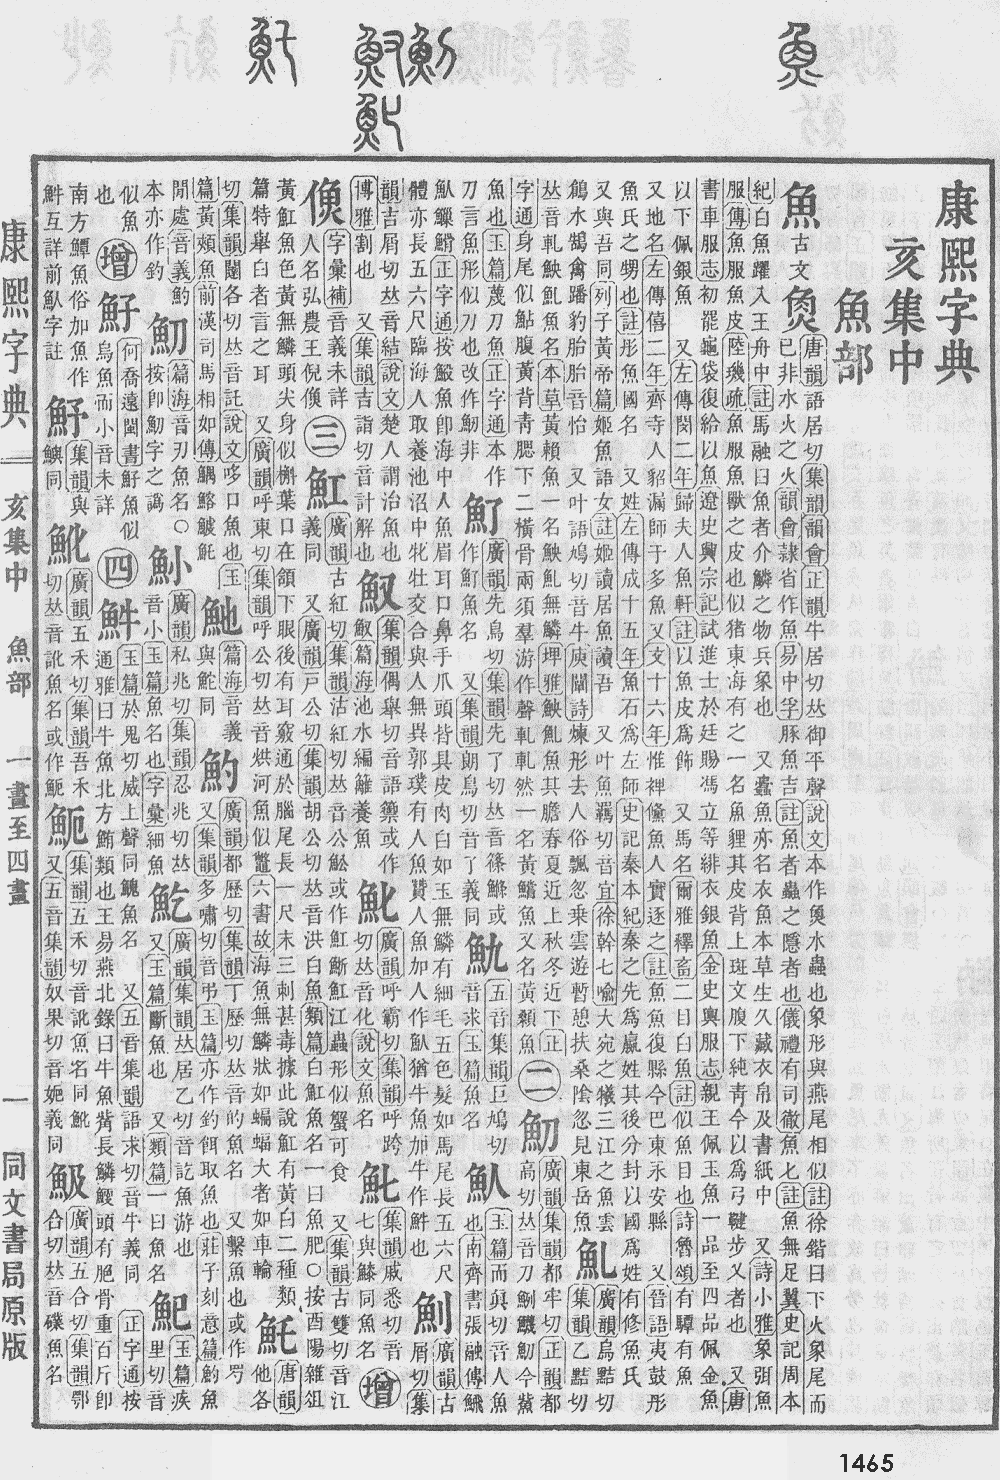 康熙字典
亥集中
魚部
魚 古文𤋳 唐韻語居切集韻韻會正韻牛居切𠀤御平聲說文本作𤋳水蟲也象形與燕尾相似註徐鍇曰下火象尾而
已非水火之火韻會隸省作魚易中孚豚魚吉註魚者蟲之隱者也儀禮有司徹魚七註魚無足翼史記周本
紀白魚躍入王舟中註馬融曰魚者介鱗之物兵象也 又蠹魚亦名衣魚本草生久藏衣帛及書紙中 又詩小雅象弭魚
服傳魚服魚皮陸璣疏魚服魚獸之皮也似猪東海有之一名魚貍其皮背上斑文腹下純靑今以爲弓鞬步叉者也 又唐
書車服志初罷龜袋復給以魚遼史興宗記試進士於廷賜馮立等緋衣銀魚金史輿服志親王佩玉魚一品至四品佩金魚
以下佩銀魚 又左傳閔二年歸夫人魚軒註以魚皮爲飾 又馬名爾雅釋畜二目白魚註似魚目也詩魯頌有驔有魚
又地名左傳僖二年齊寺人貂漏師于多魚又文十六年惟裨儵魚人實逐之註魚魚復縣今巴東永安縣 又晉語夷鼓彤
魚氏之甥也註彤魚國名 又姓左傳成十五年魚石爲左師史記秦本紀秦之先爲嬴姓其後分封以國爲姓有修魚氏
又與吾同列子黃帝篇姬魚語女註姬讀居魚讀吾 又叶魚羈切音宜徐幹七喻大宛之犧三江之魚雲
鶬水鵠禽蹯豹胎胎音怡 又叶語鳩切音牛庾闡詩煉形去人俗飄忽乘雲遊暫憩扶桑陰忽見東岳魚 䰲 廣韻烏黠切集韻乙黠切
𠀤音軋鮧䰲魚名本草黃顙魚一名鮧䰲無鱗埤雅鮧䰲魚其膽春夏近上秋冬近下正
字通身尾似鮎腹黃背靑腮下二橫骨兩須羣游作聲軋軋然一名黃鱨魚又名黃顙魚 二 魛 廣韻集韻都牢切正韻都高切𠀤音刀魛鱴魛今鮆
魚也玉篇蔑刀魚正字通本作
刀言魚形似刀也改作魛非 䰳 廣韻先鳥切集韻先了切𠀤音篠鰷或作䰳魚名 又集韻朗鳥切音了義同 䰷 五音集韻巨鳩切音求玉篇魚名 魜 玉篇而眞切音人魚也南齊書張融傳鱥
魜鱳鰼正字通按魜魚卽海中人魚眉耳口鼻手爪頭皆具皮肉白如玉無鱗有細毛五色髮如馬尾長五六尺
體亦長五六尺臨海人取養池沼中牝牡交合與人無異郭璞有人魚贊人魚加人作魜猶牛魚加牛作䱁也 魝 廣韻古屑切集
韻吉屑切𠀤音結說文楚人謂治魚也
博雅割也 又集韻吉詣切音計解也 䰻 集韻偶舉切音語籞或作䰻篇海池水編籬養魚 魤 廣韻呼霸切集韻呼跨切𠀤音化說文魚名 䰴 集韻戚悉切音七與鰶同魚名 增
字彙補音義未詳
人名弘農王倪 三 魟 廣韻古紅切集韻沽紅切𠀤音公䱋或作魟魟江蟲形似蟹可食 又集韻古雙切音江
義同 又廣韻戸公切集韻胡公切𠀤音洪白魚類篇白魟魚名一曰魚肥〇按酉陽雜俎
黃魟魚色黃無鱗頭尖身似槲葉口在頷下眼後有耳竅通於腦尾長一尺末三刺甚毒據此說魟有黃白二種類
篇特舉白者言之耳 又廣韻呼東切集韻呼公切𠀤音烘河魚似鼈六書故海魚無鱗狀如蝙蝠大者如車輪 魠 唐韻他各
切集韻闥各切𠀤音託說文哆口魚也玉
篇黃頰魚前漢司馬相如傳鰅鰫鰬魠 䰿 玉篇與鮀同篇海音義 魡 廣韻都歷切集韻丁歷切𠀤音的魚名 又繫魚也或作㓸
又集韻多嘯切音弔玉篇亦作釣餌取魚也莊子刻意篇魡魚
閒處音義魡
本亦作釣 篇海音刃魚名〇按卽魛字之譌 䰫 廣韻私兆切集韻忍兆切𠀤音小玉篇魚名也字彙細魚 䰴 廣韻集韻𠀤居乙切音訖魚游也
又玉篇斷魚也 又類篇一曰魚名 䰾 玉篇疾里切音
似魚也 增 䰵 何喬遠閩書䰵魚似烏魚而小音未詳 四 䱁 玉篇於鬼切威上聲同鮠魚名 又五音集韻語求切音牛義同 正字通按
通雅曰牛魚北方鮪類也王易燕北錄曰牛魚觜長鱗鞕頭有肥骨重百斤卽
南方鱏魚俗加魚作
䱁互詳前魜字註 魣 集韻與鱮同 魤 廣韻五禾切集韻吾禾切𠀤音訛魚名或作䰿 䰿 集韻五禾切音訛魚名同魤 又五音集韻奴果切音妮義同 魥 廣韻五合切集韻鄂合切𠀤音礏魚名
康熙字典 亥集中 魚部 一畫至四畫 一 同文書局原版
1465